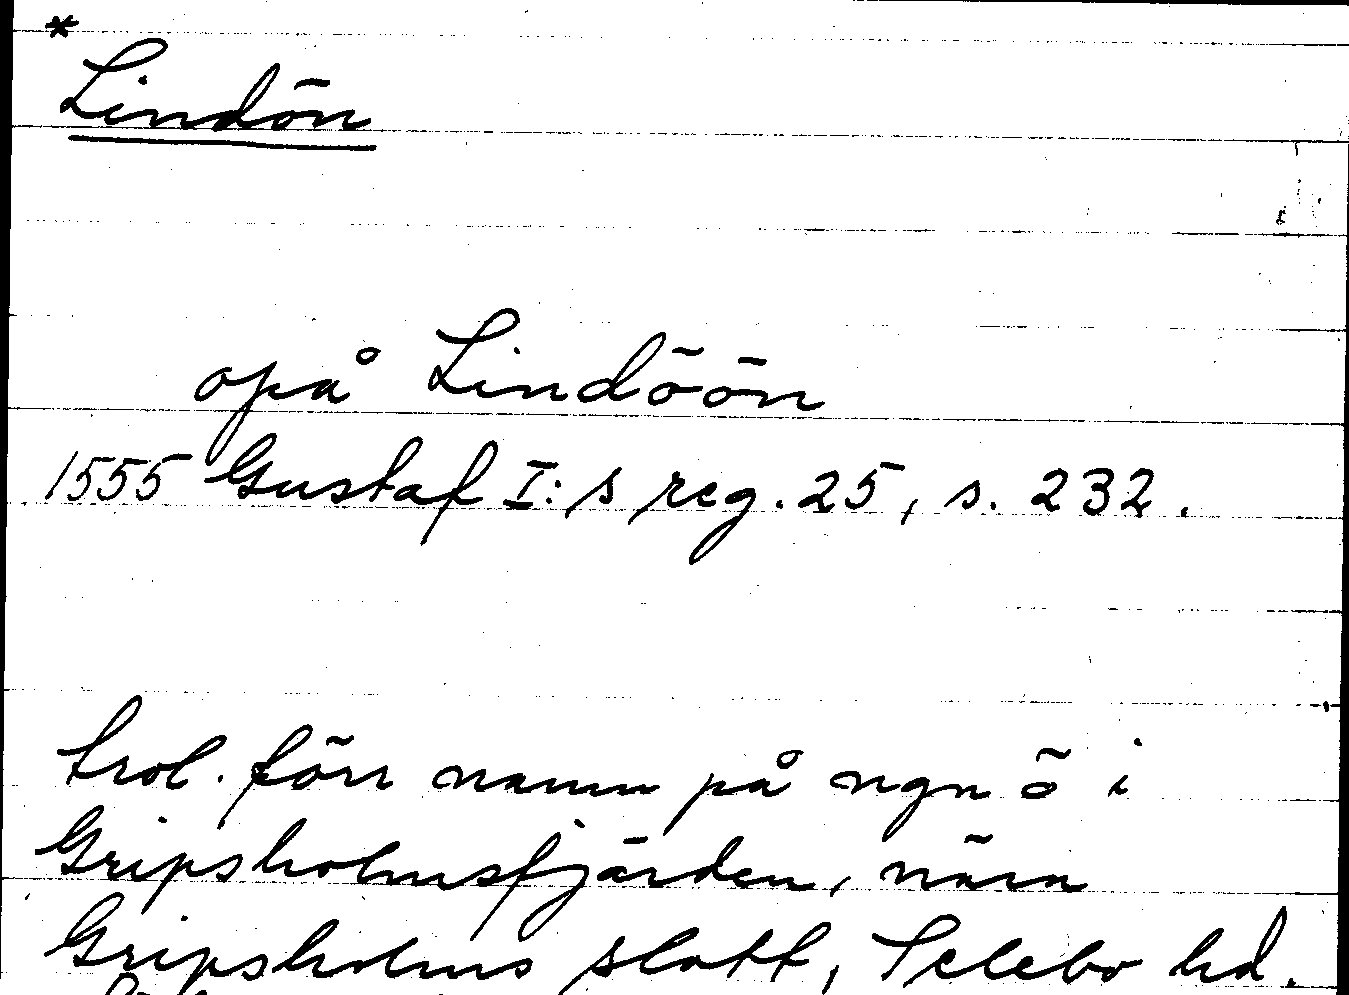 *
Lindön
opå Lindöön
1555 Gustaf I:s reg. 25, s. 232.
trol. förr namn på ngn ö i
Gripsholmsfjärden, nära
Gripsholms slott, Selebo hd.